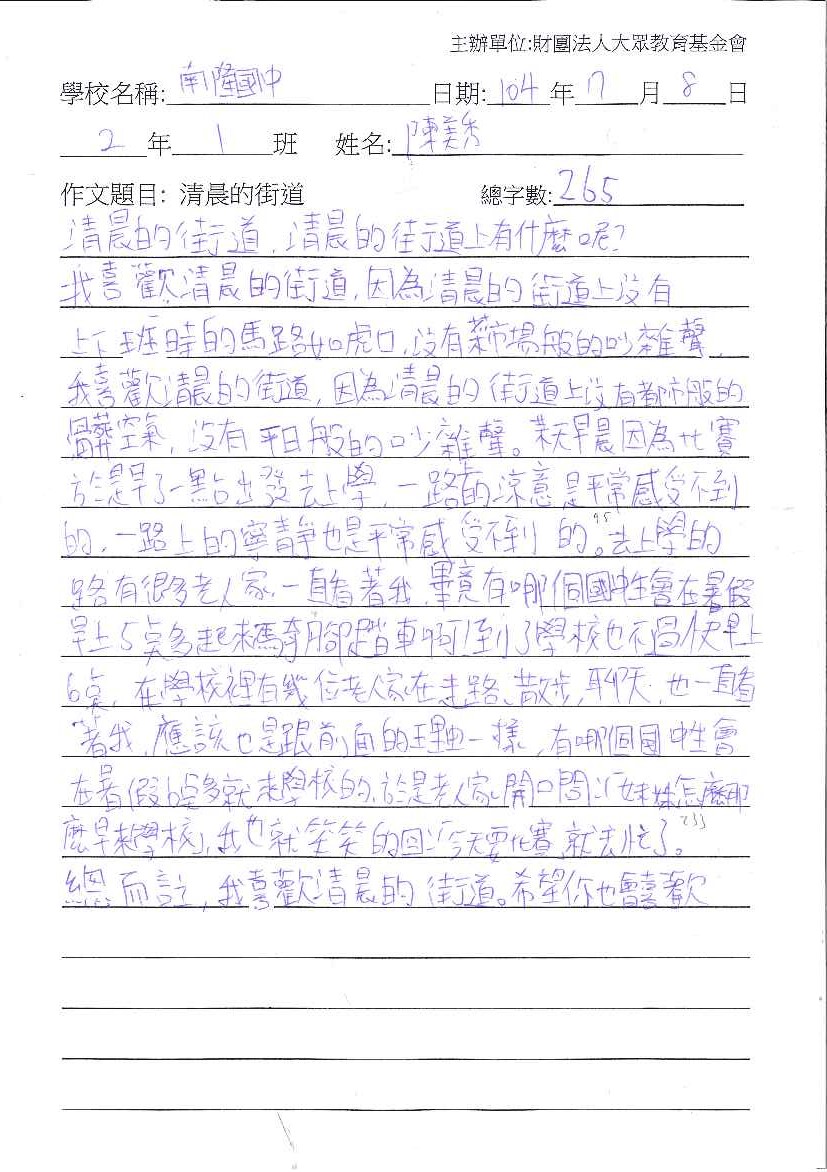 主辦單位:財團法人大眾教育基金會
學校名稱: 南隆國中 日期: 104 年 7 月 8 日
2 年 1 班 姓名: 陳美秀
作文題目: 清晨的街道 總字數: 265
清晨的街道，清晨的街道上有什麼呢?
我喜歡清晨的街道，因為清晨的街道上沒有
上下班時的馬路如虎口，沒有菜市場般的吵雜聲，
我喜歡清晨的街道，因為清晨的街道上沒有都市般的
髒空氣，沒有平日般的吵雜聲。某天早晨因為比賽
於是早了一點出發去上學，一路上的涼意是平常感受不到
的，一路上的寧靜也是平常感受不到的。95去上學的
路有很多老人家，一直看著我，畢竟有哪個國中生會在暑假
早上5點多起來騎腳踏車啊!到了學校也不過快早上
6點，在學校裡有幾位老人家在走路、散步，聊天，也一直看
著我，應該也是跟前面的理由一樣，有哪個國中生會
在暑假6點多就來學校的，於是老人家開口問:「妹妹怎麼那
麼早來學校」，我也就笑笑的回:「今天要比賽」就去忙了。233
總而言之，我喜歡清晨的街道。希望你也會喜歡